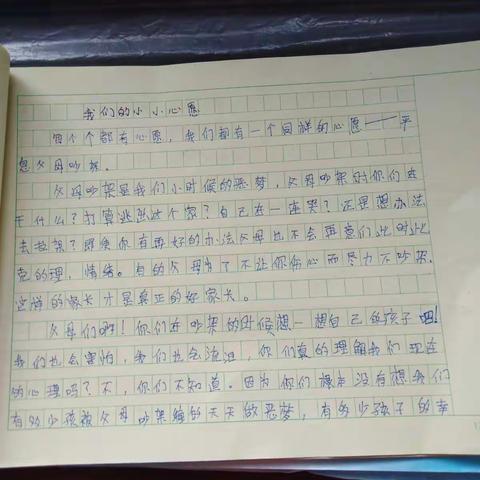 我们的小小心愿
每个个都有心愿，我们都有一个同样的心愿——平
息父母吵架。
父母吵架是我们小时候的恶梦，父母吵架时你们在
干什么？打算逃脱这个家？自己在一边哭？还是想办法
去拉架？即使你有再好的办法父母也不会再意们此时此
克的理，情绪。有的父母为了不让你伤心而尽力不吵架，
这样的家长才是真正的好家长。
父母们啊！你们在吵架的时候想一想自己的孩子吧！
我们也会害怕，我们也会流泪，你们真的理解我们现在
的心理吗？不，你们不知道。因为你们根本没有想我们
有多少孩被父母吵架缠的天天做恶梦，有多少孩子的幸